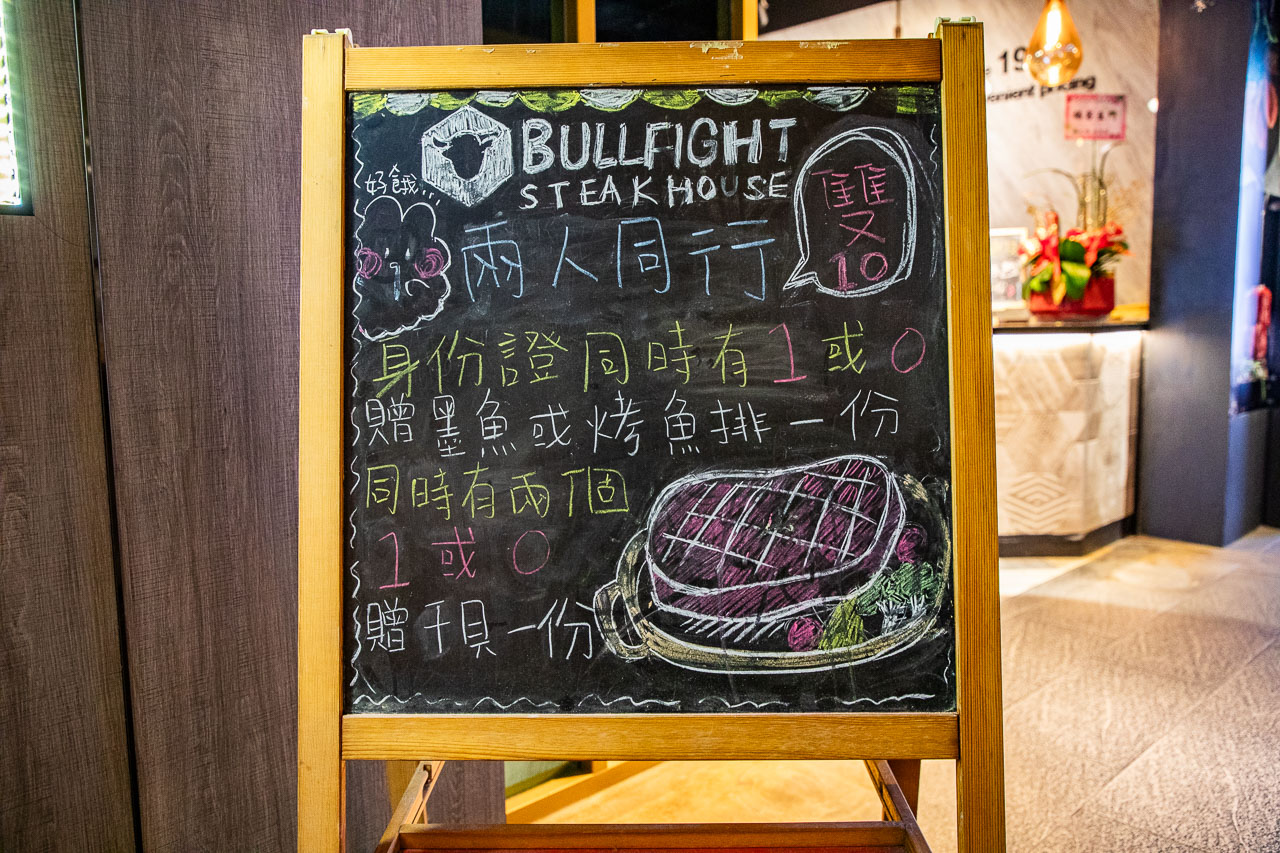 BULLFIGHT
STEAK HOUSE
好餓...
雙
10
兩人同行
身份證同時有1或0
贈墨魚或烤魚排一份
同時有兩個
1或0
贈干貝一份
19